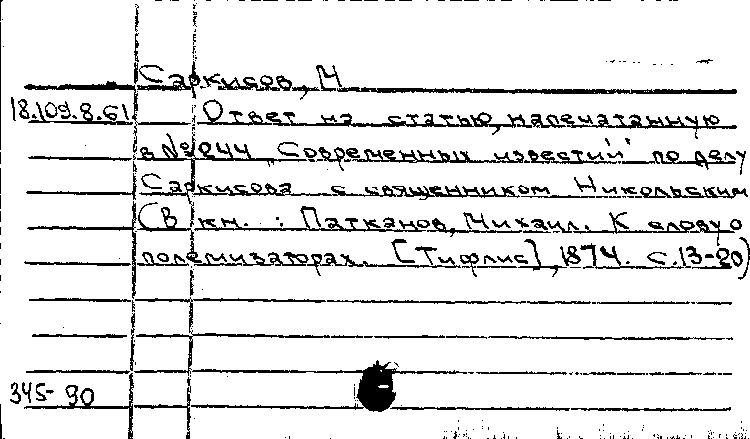 Саркисов, М
18.109.8.61 Ответ на статью, напечатанную
в №244 „Современных известий" по делу
Саркисова с священником Никольским
(В кн. : Патканов, Михаил. К слову о
полемизаторах. [Тифлис], 1874. с.13-20)
345-90